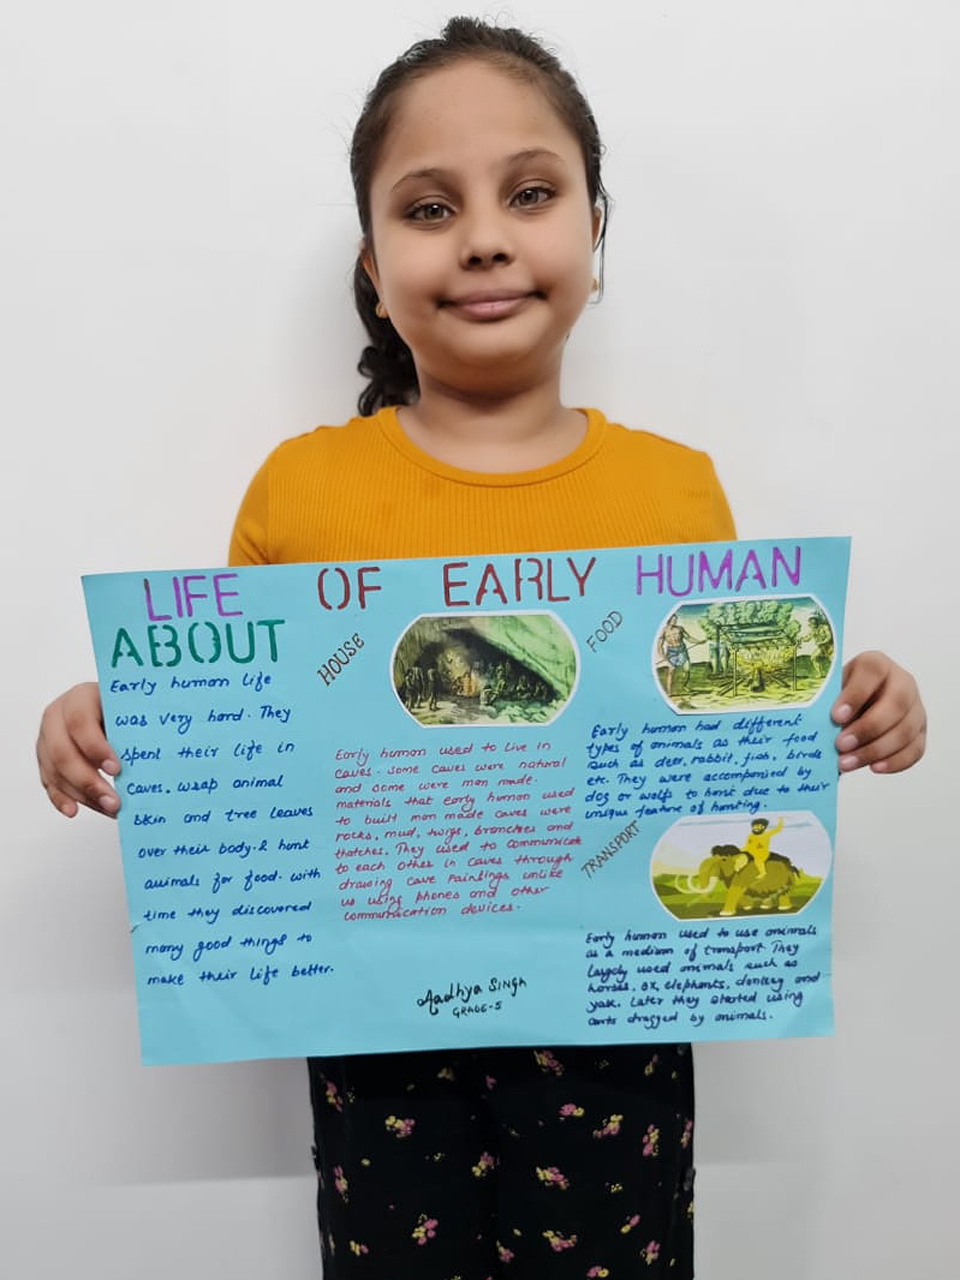 LIFE OF EARLY HUMAN
ABOUT
Early human life
was very hard. They
spent their life in
caves, wrap animal
skin and tree leaves
over their body. & hunt
animals for food. with
time they discovered
many good things to
make their life better.
HOUSE
Early human used to live in
caves. some caves were natural
and some were man made.
materials that early human used
to built man made caves were
rocks, mud, twigs, branches and
thatches. They used to communicate
to each other in caves through
drawing cave paintings unlike
us using phones and other
communication devices.
Aadhya Singh
GRADE-5
FOOD
Early human had different
types of animals as their food
such as deer, rabbit, fish, birds
etc. They were accompanied by
dog or wolfs to hunt due to their
unique feature of hunting.
TRANSPORT
Early human used to use animals
as a medium of transport They
largely used animals such as
horses, ox, elephants, donkey and
yak. Later they started using
carts dragged by animals.